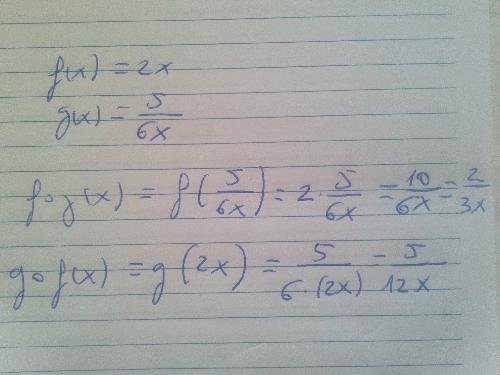 f(x) = 2x
g(x) = 5/6x
f∘g(x) = f(5/6x) = 2·5/6x = 10/6x = 2/3x
g∘f(x) = g(2x) = 5/6·(2x) = 5/12x